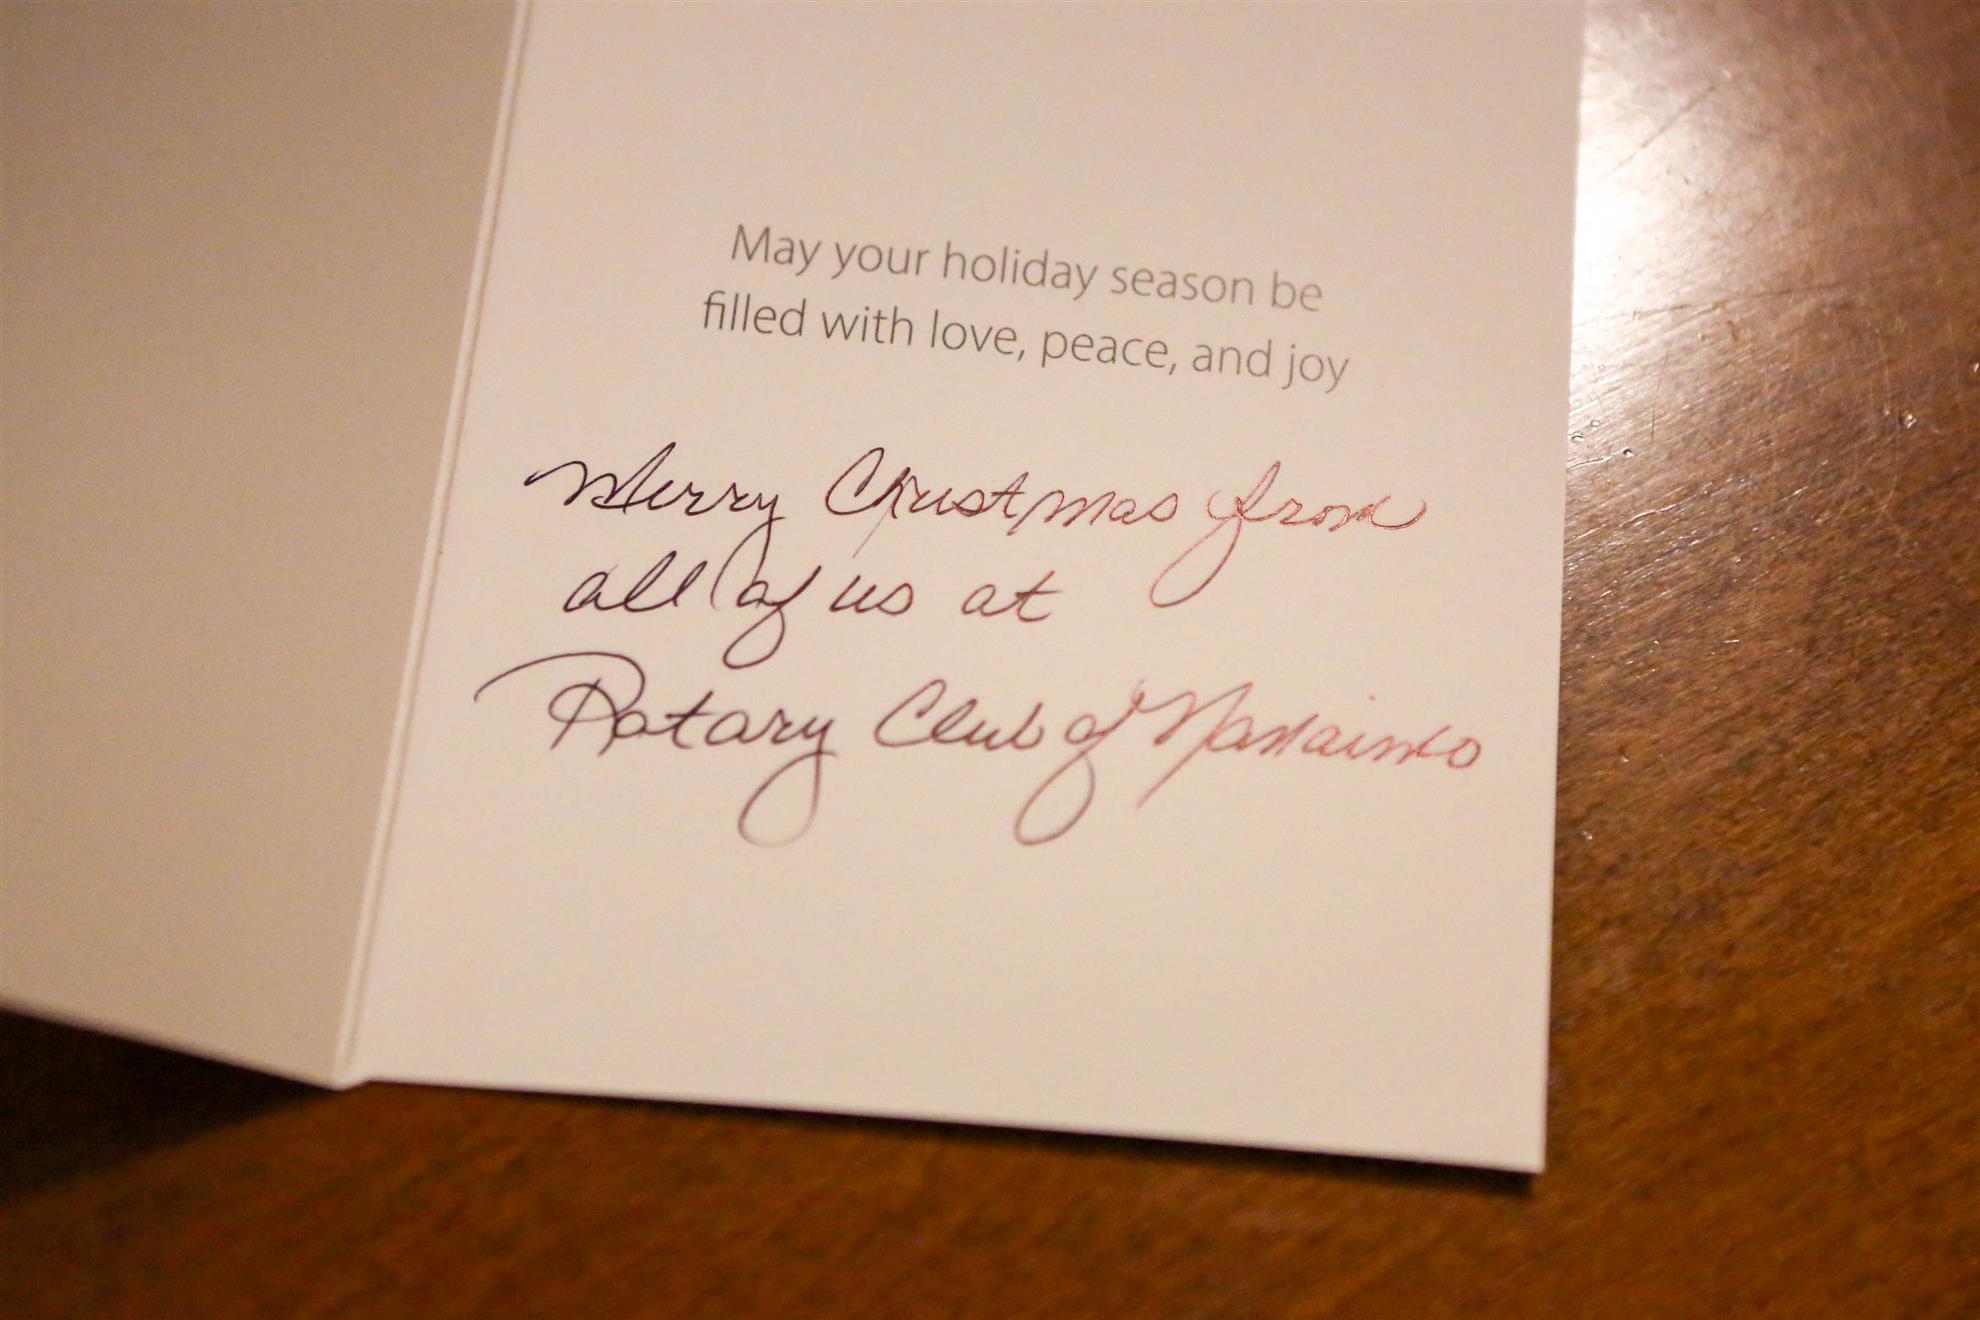 May your holiday season be
filled with love, peace, and joy
Merry Christmas from
all of us at
Rotary Club of Nanaimo